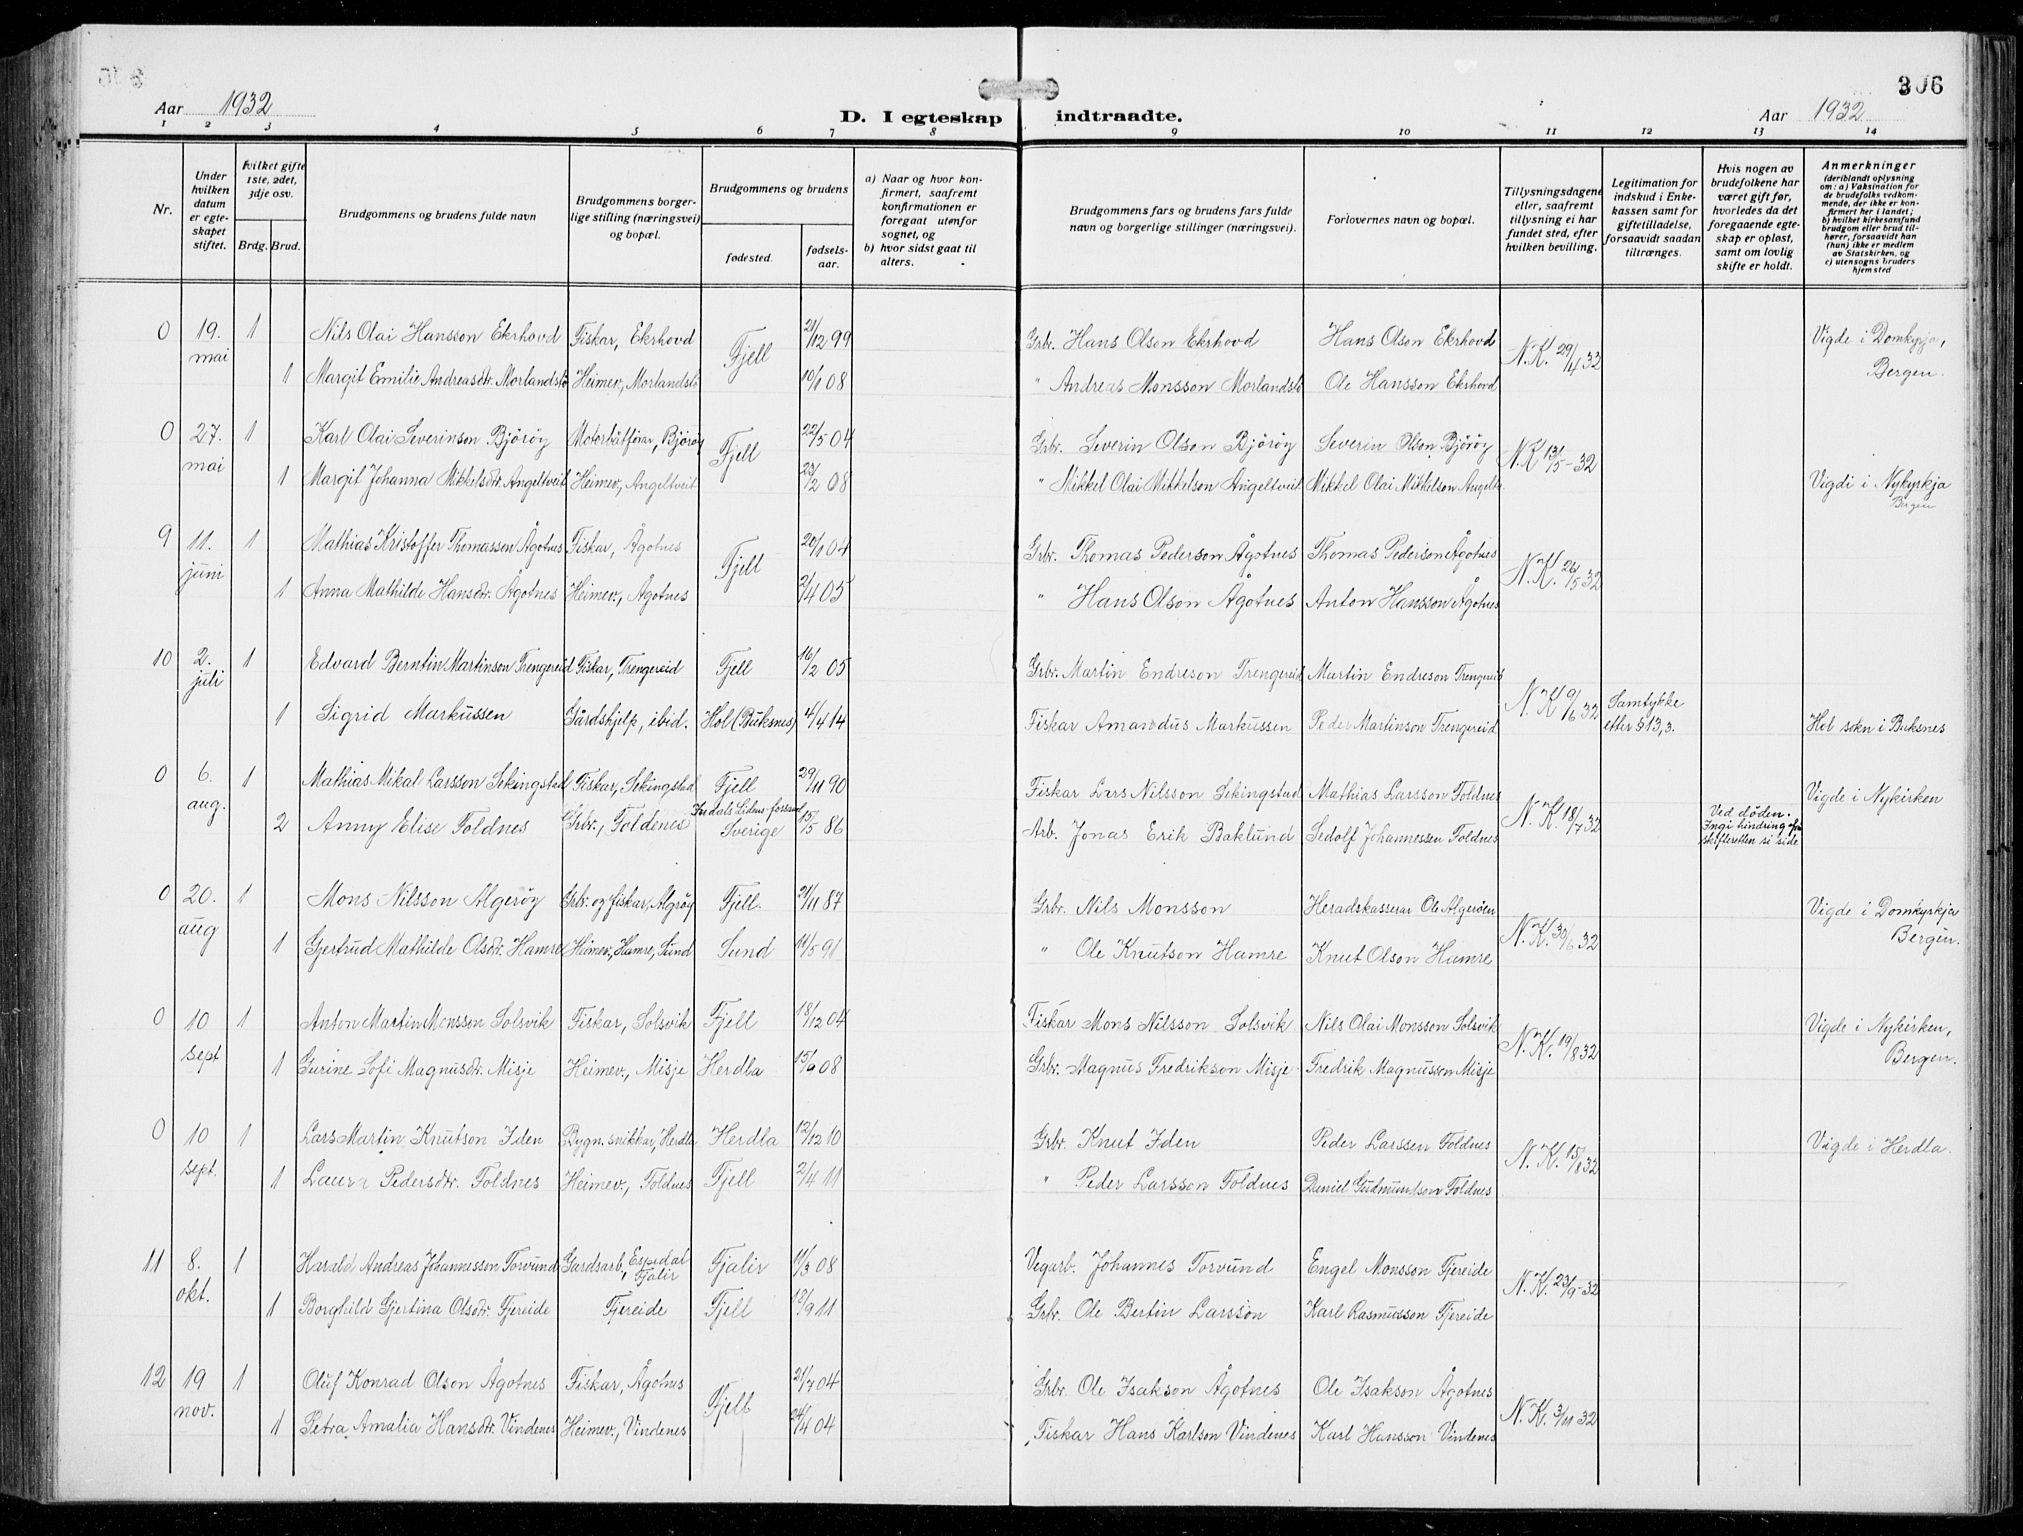 306
Aar 1932
D. I egteskap indtraadte.
Aar 1932
1 2 3 4 5 6 7 8 9 10 11 12 13 14
Nr.
Under hvilken datum er egteskapet stiftet.
Hvilket gifte 1ste, 2det, 3dje osv.
Brdg. Brud.
Brudgommens og brudens fulde navn
Brudgommens borgerlige stilling (næringsvei) og bopæl.
Brudgommens og brudens
fødested.
fødselsaar.
a) Naar og hvor konfirmert, saafremt konfirmationen er foregaat utenfor sognet, og
b) hvor sidst gaat til alters.
Brudgommens fars og brudens fars fulde navn og borgerlige stillinger (næringsvei).
Forlovernes navn og bopæl.
Tillysningsdagene eller, saafremt tillysning ei har fundet sted, efter hvilken bevilling.
Legitimation for indskud i Enkekassen samt for giftetilladelse, forsaavidt saadan tiltrænges.
Hvis nogen av brudefolkene har været gift før, hvorledes da det foregaaende egteskap er opløst, samt om lovlig skifte er holdt.
Anmerkninger (deriblandt oplysning om: a) Vaksination for de brudefolks vedkommende, der ikke er konfirmert her i landet; b) hvilket kirkesamfund brudgom eller brud tilhører, forsaavidt han (hun) ikke er medlem av Statskirken, og c) utensogns bruders hjemsted
0 19. mai 1 Nils Olai Hansson Ekrhovd Fiskar, Ekrhovd Fjell 21/12 99 Grbr. Hans Olson Ekrhovd Hans Olson Ekrhovd N.K. 29/4 32 Vigde i Domkyrkja, Bergen.
1 Margit Emilie Andreasdtr. Morlandstø Heimev., Morlandstø 10/1 08 " Andreas Monsson Morlandstø Ole Hansson Ekrhovd
0 27. mai 1 Karl Olai Severinson Bjørøy Motorbåtførar, Bjørøy Fjell 22/5 04 Grbr. Severin Olson Bjørøy Severin Olson Bjørøy N.K 13/5-32
1 Margit Johanna Mikkelsdtr. Angeltveit Heimev., Angeltveit 23/2 08 " Mikkel Olai Mikkelson Angeltveit Mikkel Olai Mikkelson Angeltv. Vigdi i Nykyrkja Bergen
9 11. juni 1 Mathias Kristoffer Thomassen Ågotnes Fiskar, Ågotnes Fjell 20/1 04 Grbr. Thomas Pederson Ågotnes Thomas Pederson Ågotnes N.K. 26/5 32
1 Anna Mathilde Hansdtr. Ågotnes Heimev., Ågotnes 2/4 05 " Hans Olson Ågotnes Anton Hansson Ågotnes
10 2. juli 1 Edvard Berntin Martinson Trengereid Fiskar, Trengereid Fjell 16/2 05 Grbr. Martin Endreson Trengereid Martin Endreson Trengereid N.K 9/6 32
1 Sigrid Markussen Gårdshjelp, ibid. Hol (Buksnes) 4/4 14 Fiskar Amandus Markussen Peder Martinson Trengereid Samtykke etter § 13,3. Hol sokn i Buksnes
0 6. aug. 1 Mathias Mikal Larsson Sekingstad Fiskar, Sekingstad Fjell 29/11 90 Fiskar Lars Nilsson Sekingstad Mathias Larsson Foldnes N.K. 18/7 32 Vigde i Nykirken
2 Anny Elise Foldnes Grbr., Foldenes Sverige 15/5 86 Arb. Jonas Erik Baklund Sedolf Johannessen Foldnes Ved døden. Ingi hindring skifteretten si side
0 20. aug 1 Mons Nilsson Algerøy Grbr. og fiskar, Algrøy Fjell. 21/11 87 Grbr. Nils Monsson Heradskasserar Ole Algerøen N.K. 30/6 32 Vigde i Domkyrkja Bergen.
1 Gjertrud Mathilde Olsdtr. Hamre Heimev., Hamre, Sund Sund 14/5 91 " Ole Knutson Hamre Knut Olson Hamre
0 10 sept 1 Anton Martin Monsson Solsvik Fiskar, Solsvik Fjell 18/12 04 Fiskar Mons Nilsson Solsvik Nils Olai Monsson Solsvik N.K. 19/8 32 Vigde i Nykirken, Bergen.
1 Gurine Sofi Magnusdtr. Misje Heimev., Misje Herdla 08 Grbr. Magnus Fredrikson Misje Fredrik Magnusson Misje
0 10 sept. 1 Lars Martin Knutson Iden Bygn.snikkar, Herdla Herdla 12/12 10 Grbr. Knut Iden Peder Larssen Foldnes N.K. 15/8 32 Vigde i Herdla.
1 Laura Pedersdtr. Foldnes Heimev., Foldnes Fjell 2/4 11 " Peder Larsson Foldnes Daniel Gudmundson Foldnes
11 8. okt. 1 Harald Andreas Johannesson Torvund Gardsarb., Espedal Fjalir Fjalir 11/3 08 Vegarb. Johannes Torvund Engel Monsson Fjereide N.K. 23/9-32
1 Borghild Gjertina Olsdtr. Fjereide Fjereide Fjell 11 Grbr. Ole Bertin Larsson Karl Rasmusson Fjereide
12 19 nov. 1 Oluf Konrad Olson Ågotnes Fiskar, Ågotnes Fjell 21/7 04 Grbr. Ole Isakson Ågotnes Ole Isakson Ågotnes N.K. 3/11 32
1 Petra Amalia Hansdtr. Vindenes Heimev., Vindenes 24/4 04 Fiskar Hans Karlson Vindenes Karl Hansson Vindenes